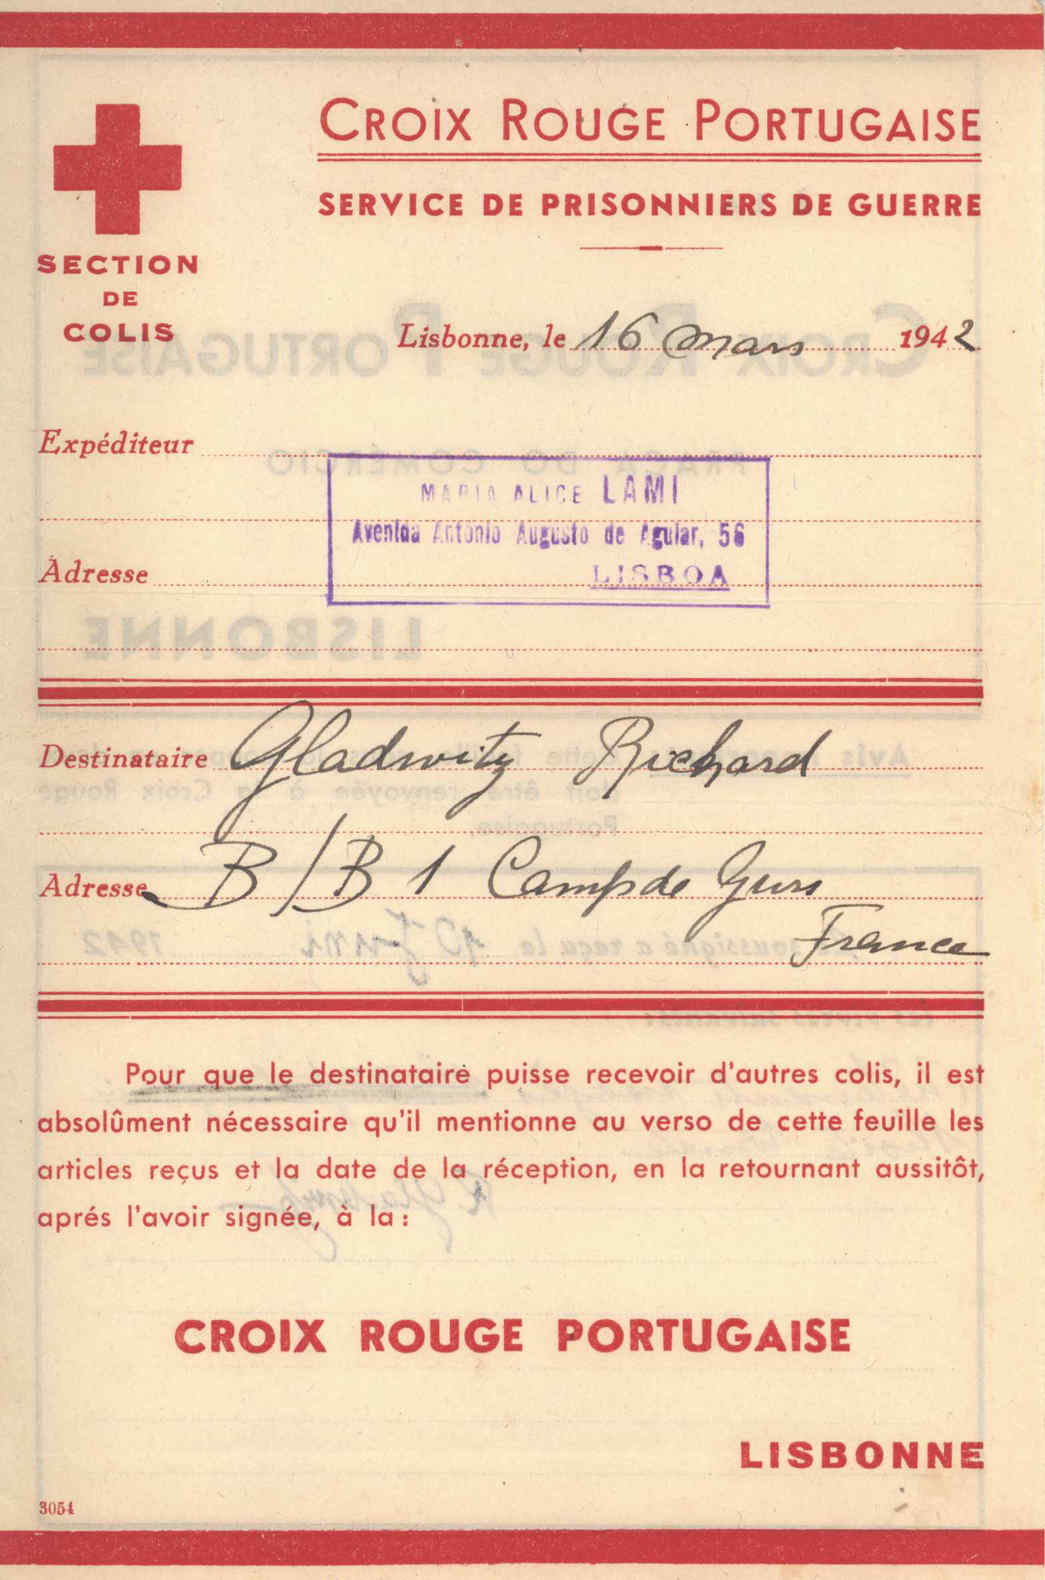 CROIX ROUGE PORTUGAISE
SERVICE DE PRISONNIERS DE GUERRE
SECTION
DE
COLIS
Lisbonne, le 16 Mars 1942
Expéditeur
MARIA ALICE LAMI
Avenida Antonio Augusto de Aguiar, 56
Adresse
LISBOA
Destinataire Gladwitz Richard
Adresse B/B 1 Camp de Gurs
France
Pour que le destinataire puisse recevoir d'autres colis, il est
absolûment nécessaire qu'il mentionne au verso de cette feuille les
articles reçus et la date de la réception, en la retournant aussitôt,
aprés l'avoir signée, à la :
CROIX ROUGE PORTUGAISE
LISBONNE
3054